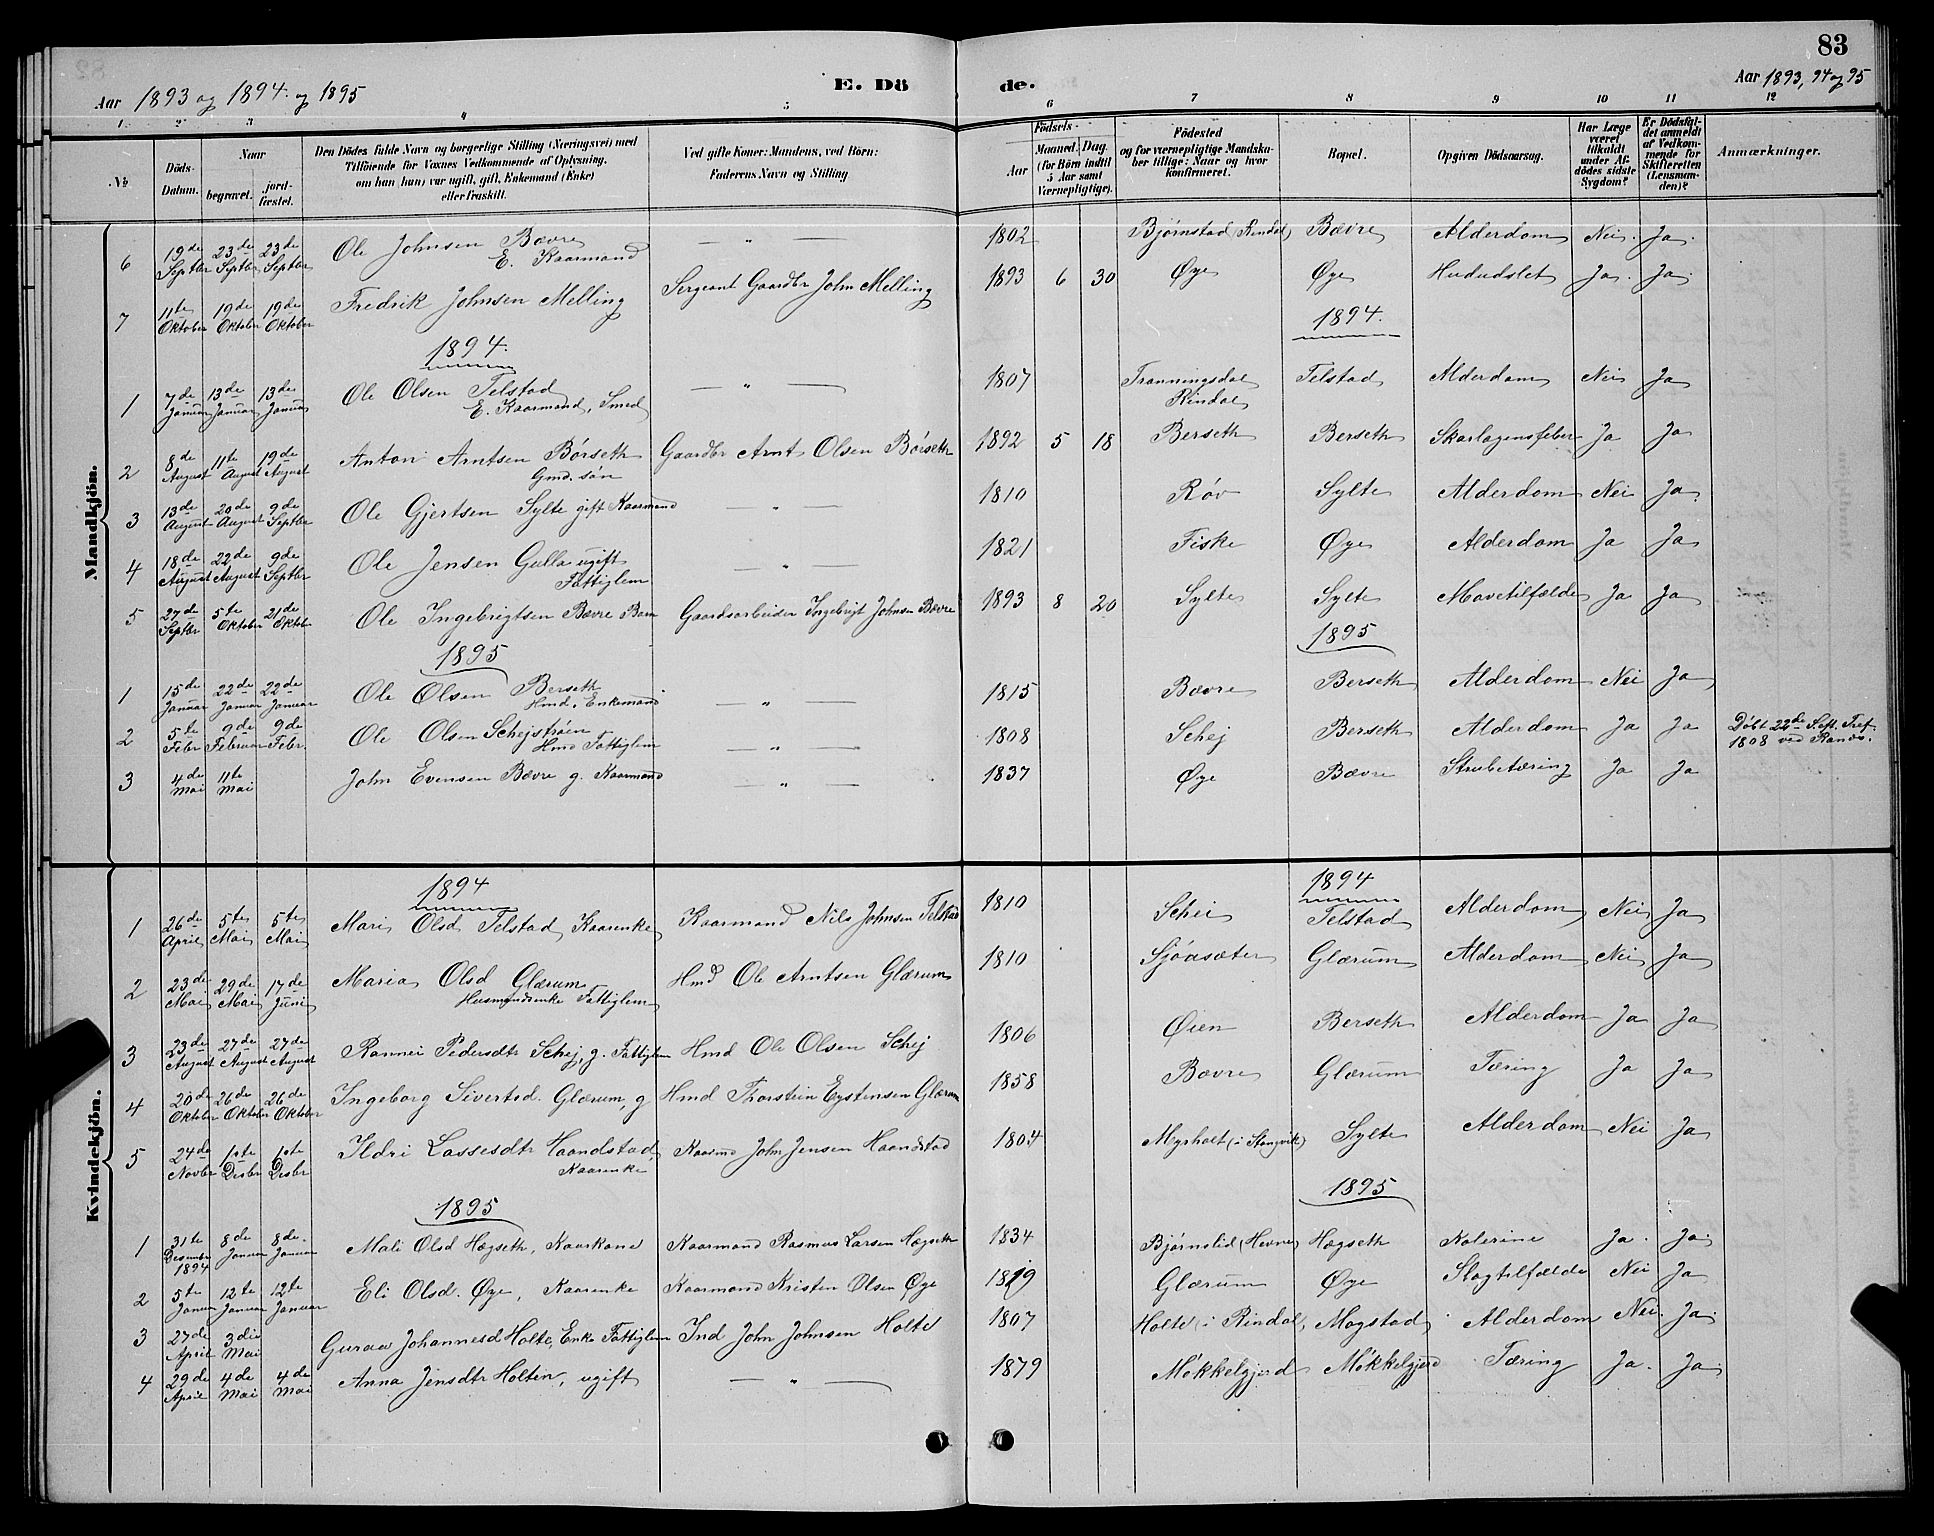 83
Aar 1893 og 1894. og 1895
E. Dö
de.
Aar 1893, 94 og 95
1. 2 3 4 5 6 7 8 9 10 11 12
№
Döds-Datum.
Naar
begravet.
jord-fæstet.
Den Dödes fulde Navn og borgerlige Stilling (Næringsvei) med
Tilföiende for Voxnes Vedkommende af Oplysning,
om han (hun) var ugift, gift, Enkemand (Enke)
eller fraskilt.
Ved gifte Koner: Mandens, ved Börn:
Faderens Navn og Stilling
Födsels-
Aar
Maaned. Dag.
(for Börn indtil
5 Aar samt
Værnepligtige).
Födested
og for værnepligtige Mandska-
ber tillige: Naar og hvor
konfirmeret.
Bopæl.
Opgiven Dödsaarsag.
Har Læge
været
tilkaldt
under Af-
dödes sidste
Sygdom?
Er Dödsfal-
det anmeldt
af Vedkom-
mende for
Skifteretten
(Lensman-
den)?
Anmærkninger.
Mandkjön.
6 19de Septbr 23de Septbr 23de Septbr Ole Johnsen Bævre E. Kaarmand — " — 1802 Bjørnstad (Rindal) Bævre Alderdom Nei. Ja.
7 11te Oktober 19de Oktober 19de Oktober Fredrik Johnsen Melling Sergeant Gaardbr John Melling 1893 6 30 Øye Øye Hududslet Ja. Ja.
1894. 1894.
1 7de Januar 13de Januar 13de Januar Ole Olsen Telstad E. Kaarmand, Smed — " — 1807 Tranningsdal Rindal Telstad Alderdom Nei Ja
2 8de August 11te August 19de August Anton Arntsen Børseth Gmd. søn Gaardbr Arnt Olsen Børseth 1892 5 18 Berseth Berseth Skarlagensfeber Ja Ja
3 13de August 20de August 9de Septbr Ole Gjertsen Sylte gift Kaarmand — " — 1810 Røv Sylte Alderdom Nei Ja
4 18de August 22de August 9de Septbr Ole Jensen Gulla ugift Fattiglem — " — 1821 Fiske Øye Alderdom Ja Ja
5 27de Septbr 5te Oktober 21de Oktobr Ole Ingebrigtsen Bævre Barn Gaardsarbeider Ingebrigt Johnsen Bævre 1893 8 20 Sylte Sylte Mavetilfælde Ja Ja
1895 1895
1 15de Januar 22de Januar 22de Januar Ole Olsen Berseth Hmd. Enkemand — " — 1815 Bævre Berseth Alderdom Nei Ja
2 5te Febr 9de Februar 9de Febr. Ole Olsen Schejstrøen Hmd Fattiglem — " — 1808 Schej Berseth Alderdom Ja Ja Døbt 22de Sept. Tref. 1808 ved Ranes.
3 4de Mai 11te Mai John Evensen Bævre g. Kaarmand — " — 1837 Øye Bævre Strubetæring Ja Ja
Kvindekjön.
1894 1894
1 26de April 5te Mai 5te Mai Mari Olsd Telstad Kaarenke Kaarmand Nils Johnsen Telstad 1810 Schei Telstad Alderdom Nei Ja
2 23de Mai 29de Mai 17de Juni Maria Olsd Glærum Husmandsenke Fattiglem Hmd Ole Arntsen Glærum 1810 Sjøasæter Glærum Alderdom Nei Ja
3 23de August 27de August 27de August Rannei Pedersdtr Schej, g. Fattiglem Hmd Ole Olsen Schej 1806 Øien Berseth Alderdom Ja Ja
4 20de Oktober 26de Oktober 26de Oktober Ingeborg Sivertsd. Glærum, g Hmd Thorstein Eystensen Glærum 1858 Bævre Glærum Tæring Ja Ja
5 24de Novbr 1ste Desbr 1ste Desbr Ildri Lassesdtr Haandstad Kaarenke Kaarmd John Jensen Haandstad 1804 Myrholt (i Stangvik) Sylte Alderdom Nei Ja
1895 1895
1 31te Desember 1894 8de Januar 8de. Januar Mali Olsd Hægseth, Kaarkone Kaarmand Rasmus Larsen Hægseth 1834 Bjørnslid (Hevne) Hægseth Kolerine Ja. Ja.
2 5te Januar 12te Januar 12te Januar Eli Olsd. Øye, Kaarenke Kaarmand Kristen Olsen Øye 1819 Glærum Øye Slagtilfælde Nei Ja
3 27de April 3die Mai Guraa Johannesd Holte, Enke Fattiglem Ind John Johnsen Holte 1807 Holte (i Rindal) Mogstad Alderdom Nei. Ja.
4 29de April 4de Mai 4de Mai Anna Jensdtr Holten, ugift — " — 1879 Møkkelgjerd Møkkelgjerd Tæring Ja. Ja.